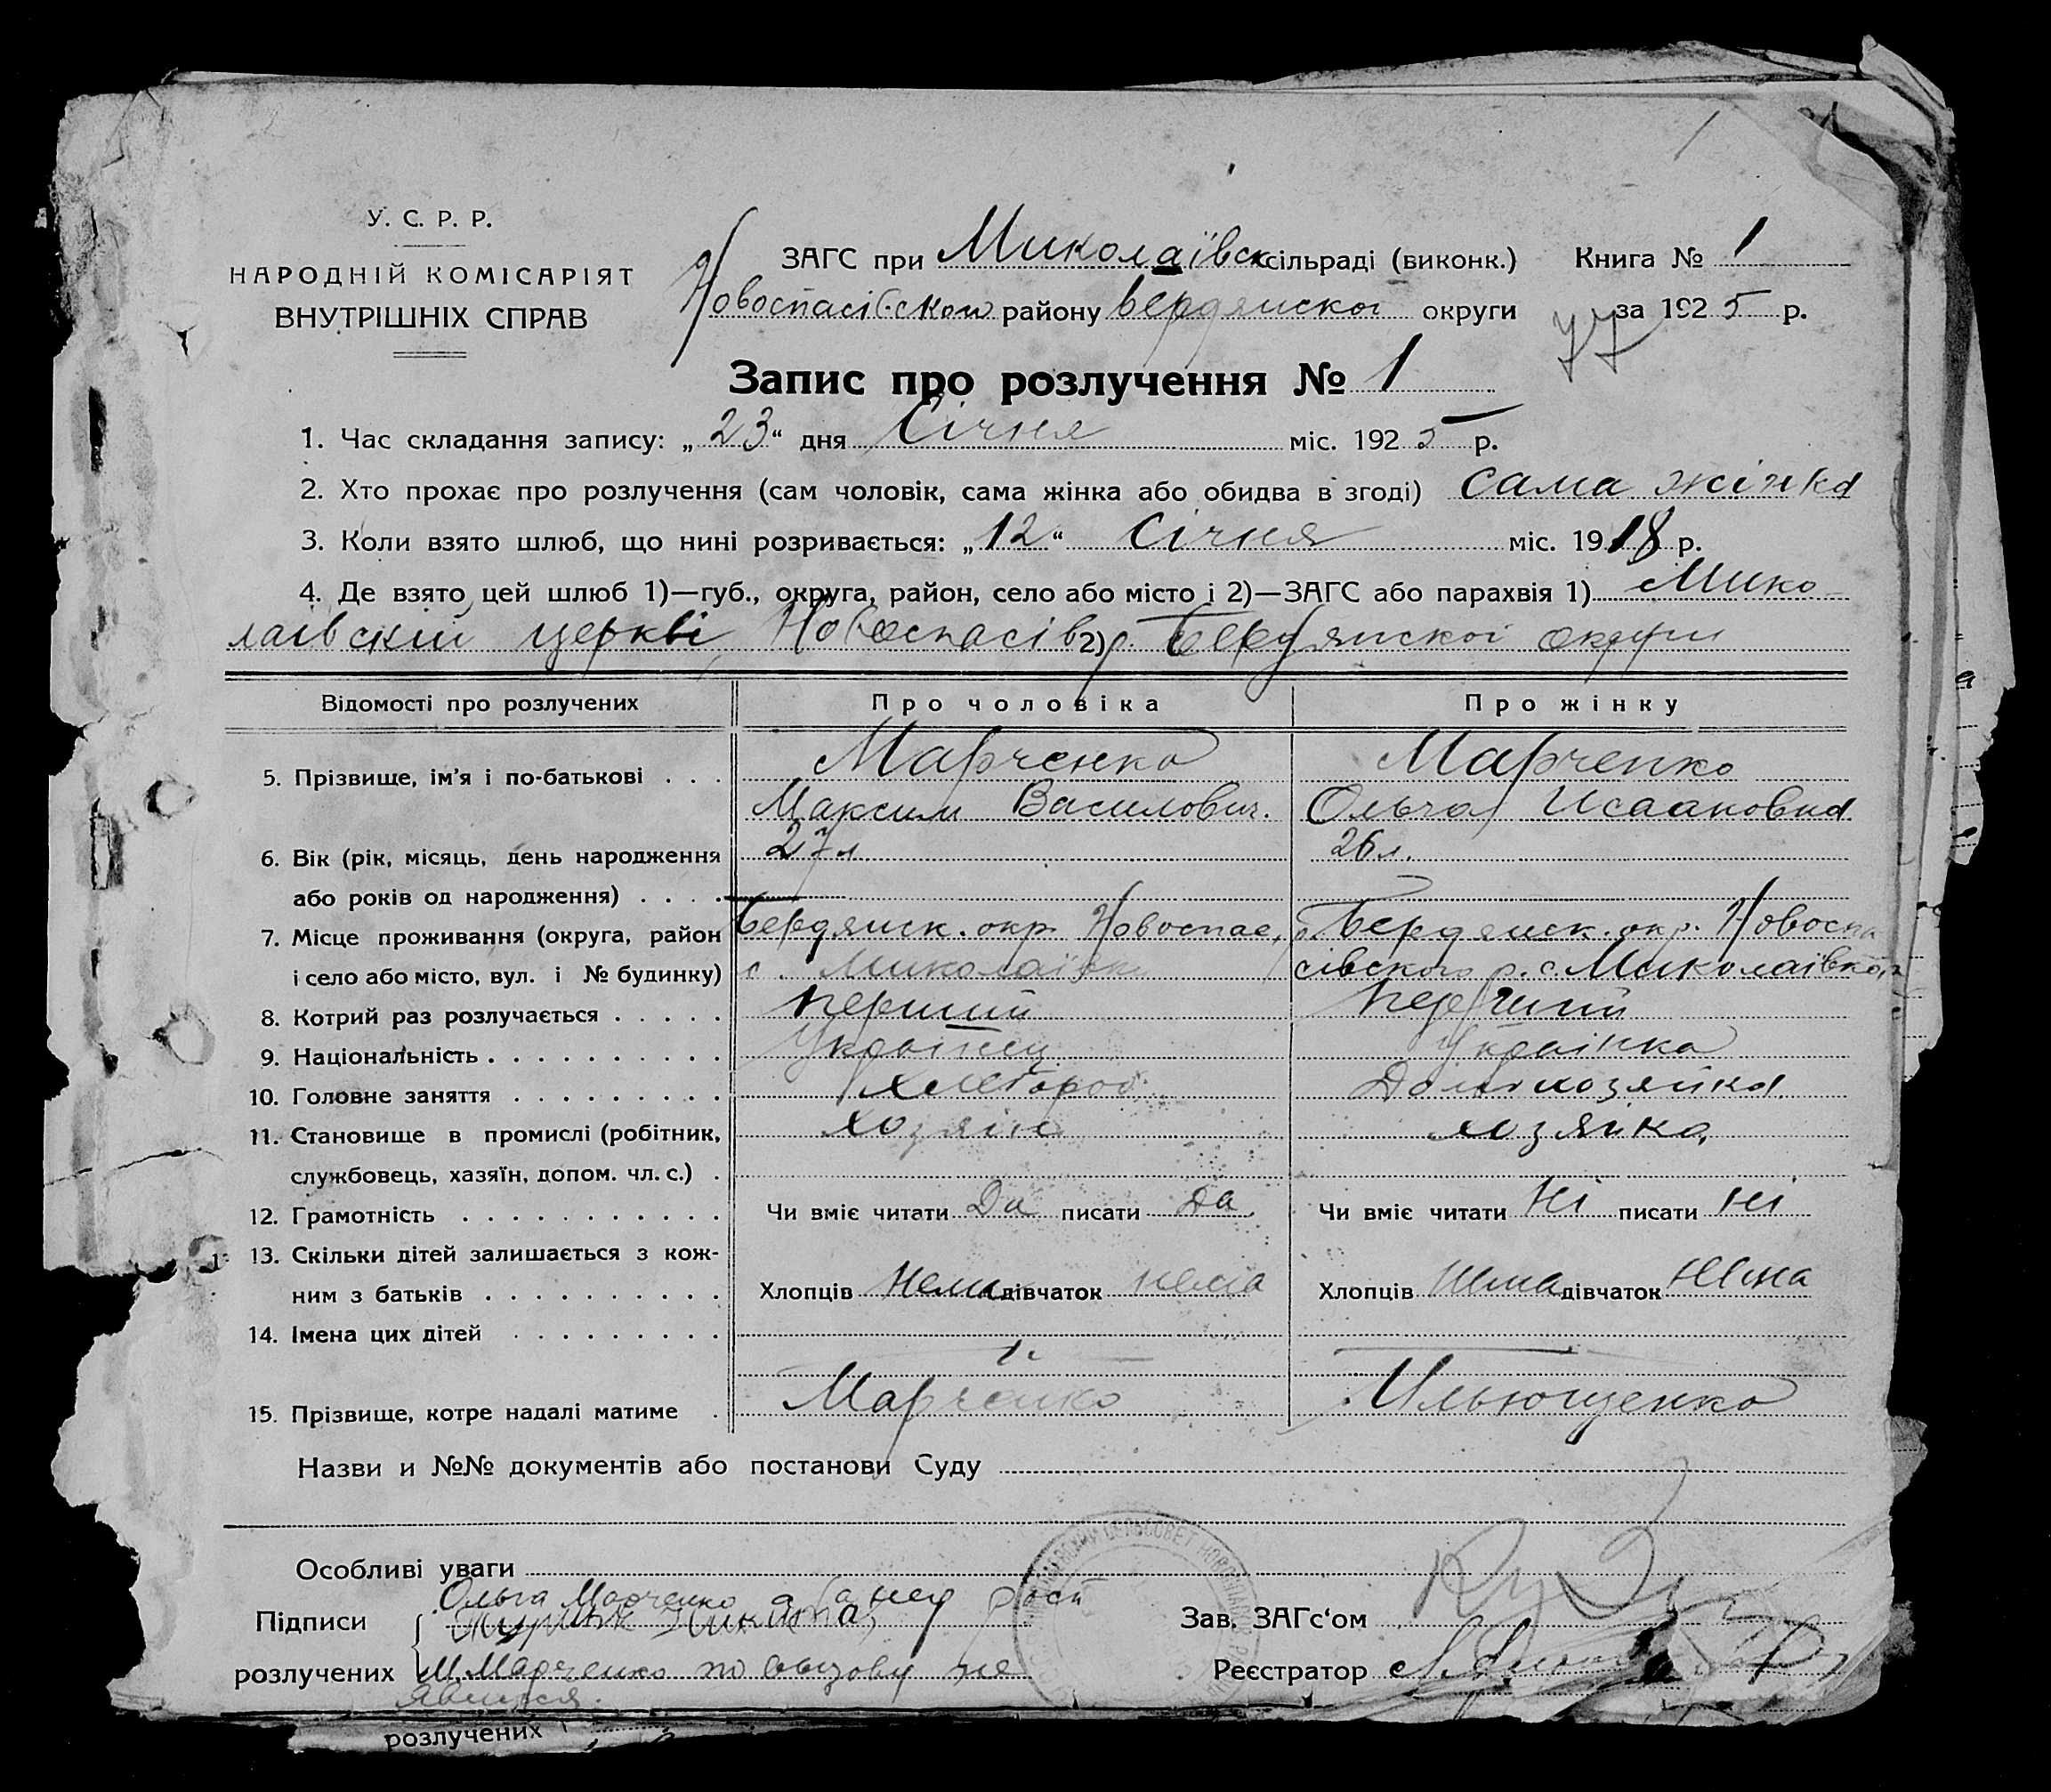 У. С. Р. Р.
НАРОДНІЙ КОМІСАРІЯТ
ВНУТРІШНІХ СПРАВ
ЗАГС при Миколаївск сільраді (виконк.) Книга № 1
Новоспасівскою району Бердянскої округи за 1925 р.
77
Запис про розлучення № 1
1. Час складання запису: „23“ дня Січня міс. 1925 р.
2. Хто прохає про розлучення (сам чоловік, сама жінка або обидва в згоді) сама жінка
3. Коли взято шлюб, що нині розривається: „12“ Січня міс. 1918 р.
4. Де взято цей шлюб 1)—губ., округа, район, село або місто і 2)—ЗАГС або парахвія 1) Мико
лаівскій церкві, Новоспасів 2) р. Бердянскоі округи
Відомості про розлучених Про чоловіка Про жінку
5. Прізвище, ім'я і по-батькові . . . Марченко Марченко
Максим Василович. Ольга Исааковна
6. Вік (рік, місяць, день народження 27 л 26 л.
або років од народження) . . . .
7. Місце проживання (округа, район Бердянск. окр. Новоспас, Бердянск. окр. Новоспа
і село або місто, вул. і № будинку) с. Миколаївк сівского р. с. Миколаівка
8. Котрий раз розлучається . . . . . перший перший
9. Національність . . . . . . . . . . Українец Украінка
10. Головне заняття . . . . . . . . . Хлебороб Домохозяйка
11. Становище в промислі (робітник, хозяін хозяйка
службовець, хазяїн, допом. чл. с.) .
12. Грамотність . . . . . . . . . . . Чи вміє читати Да писати Да Чи вміє читати Ні писати Ні
13. Скільки дітей залишається з кож-
ним з батьків . . . . . . . . . . Хлопців Нема дівчаток нема Хлопців Нема дівчаток Нема
14. Імена цих дітей . . . . . . . . .
15. Прізвище, котре надалі матиме . Марченко Ильющенко
Назви и №№ документів або постанови Суду
Особливі уваги
Ольга Марченко
Підписи
розлучених М. Марченко по визову не
явился.
Зав. ЗАГс‘ом
Реєстратор
розлучених